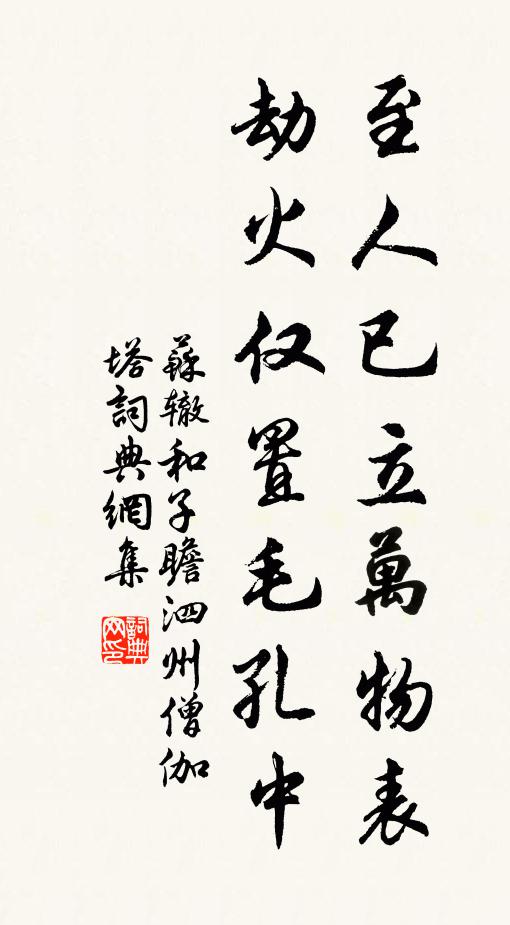 至人已立萬物表
劫火仅置毛孔中
蘇辙和子瞻泗州僧伽
塔詞典網集
詞典网印